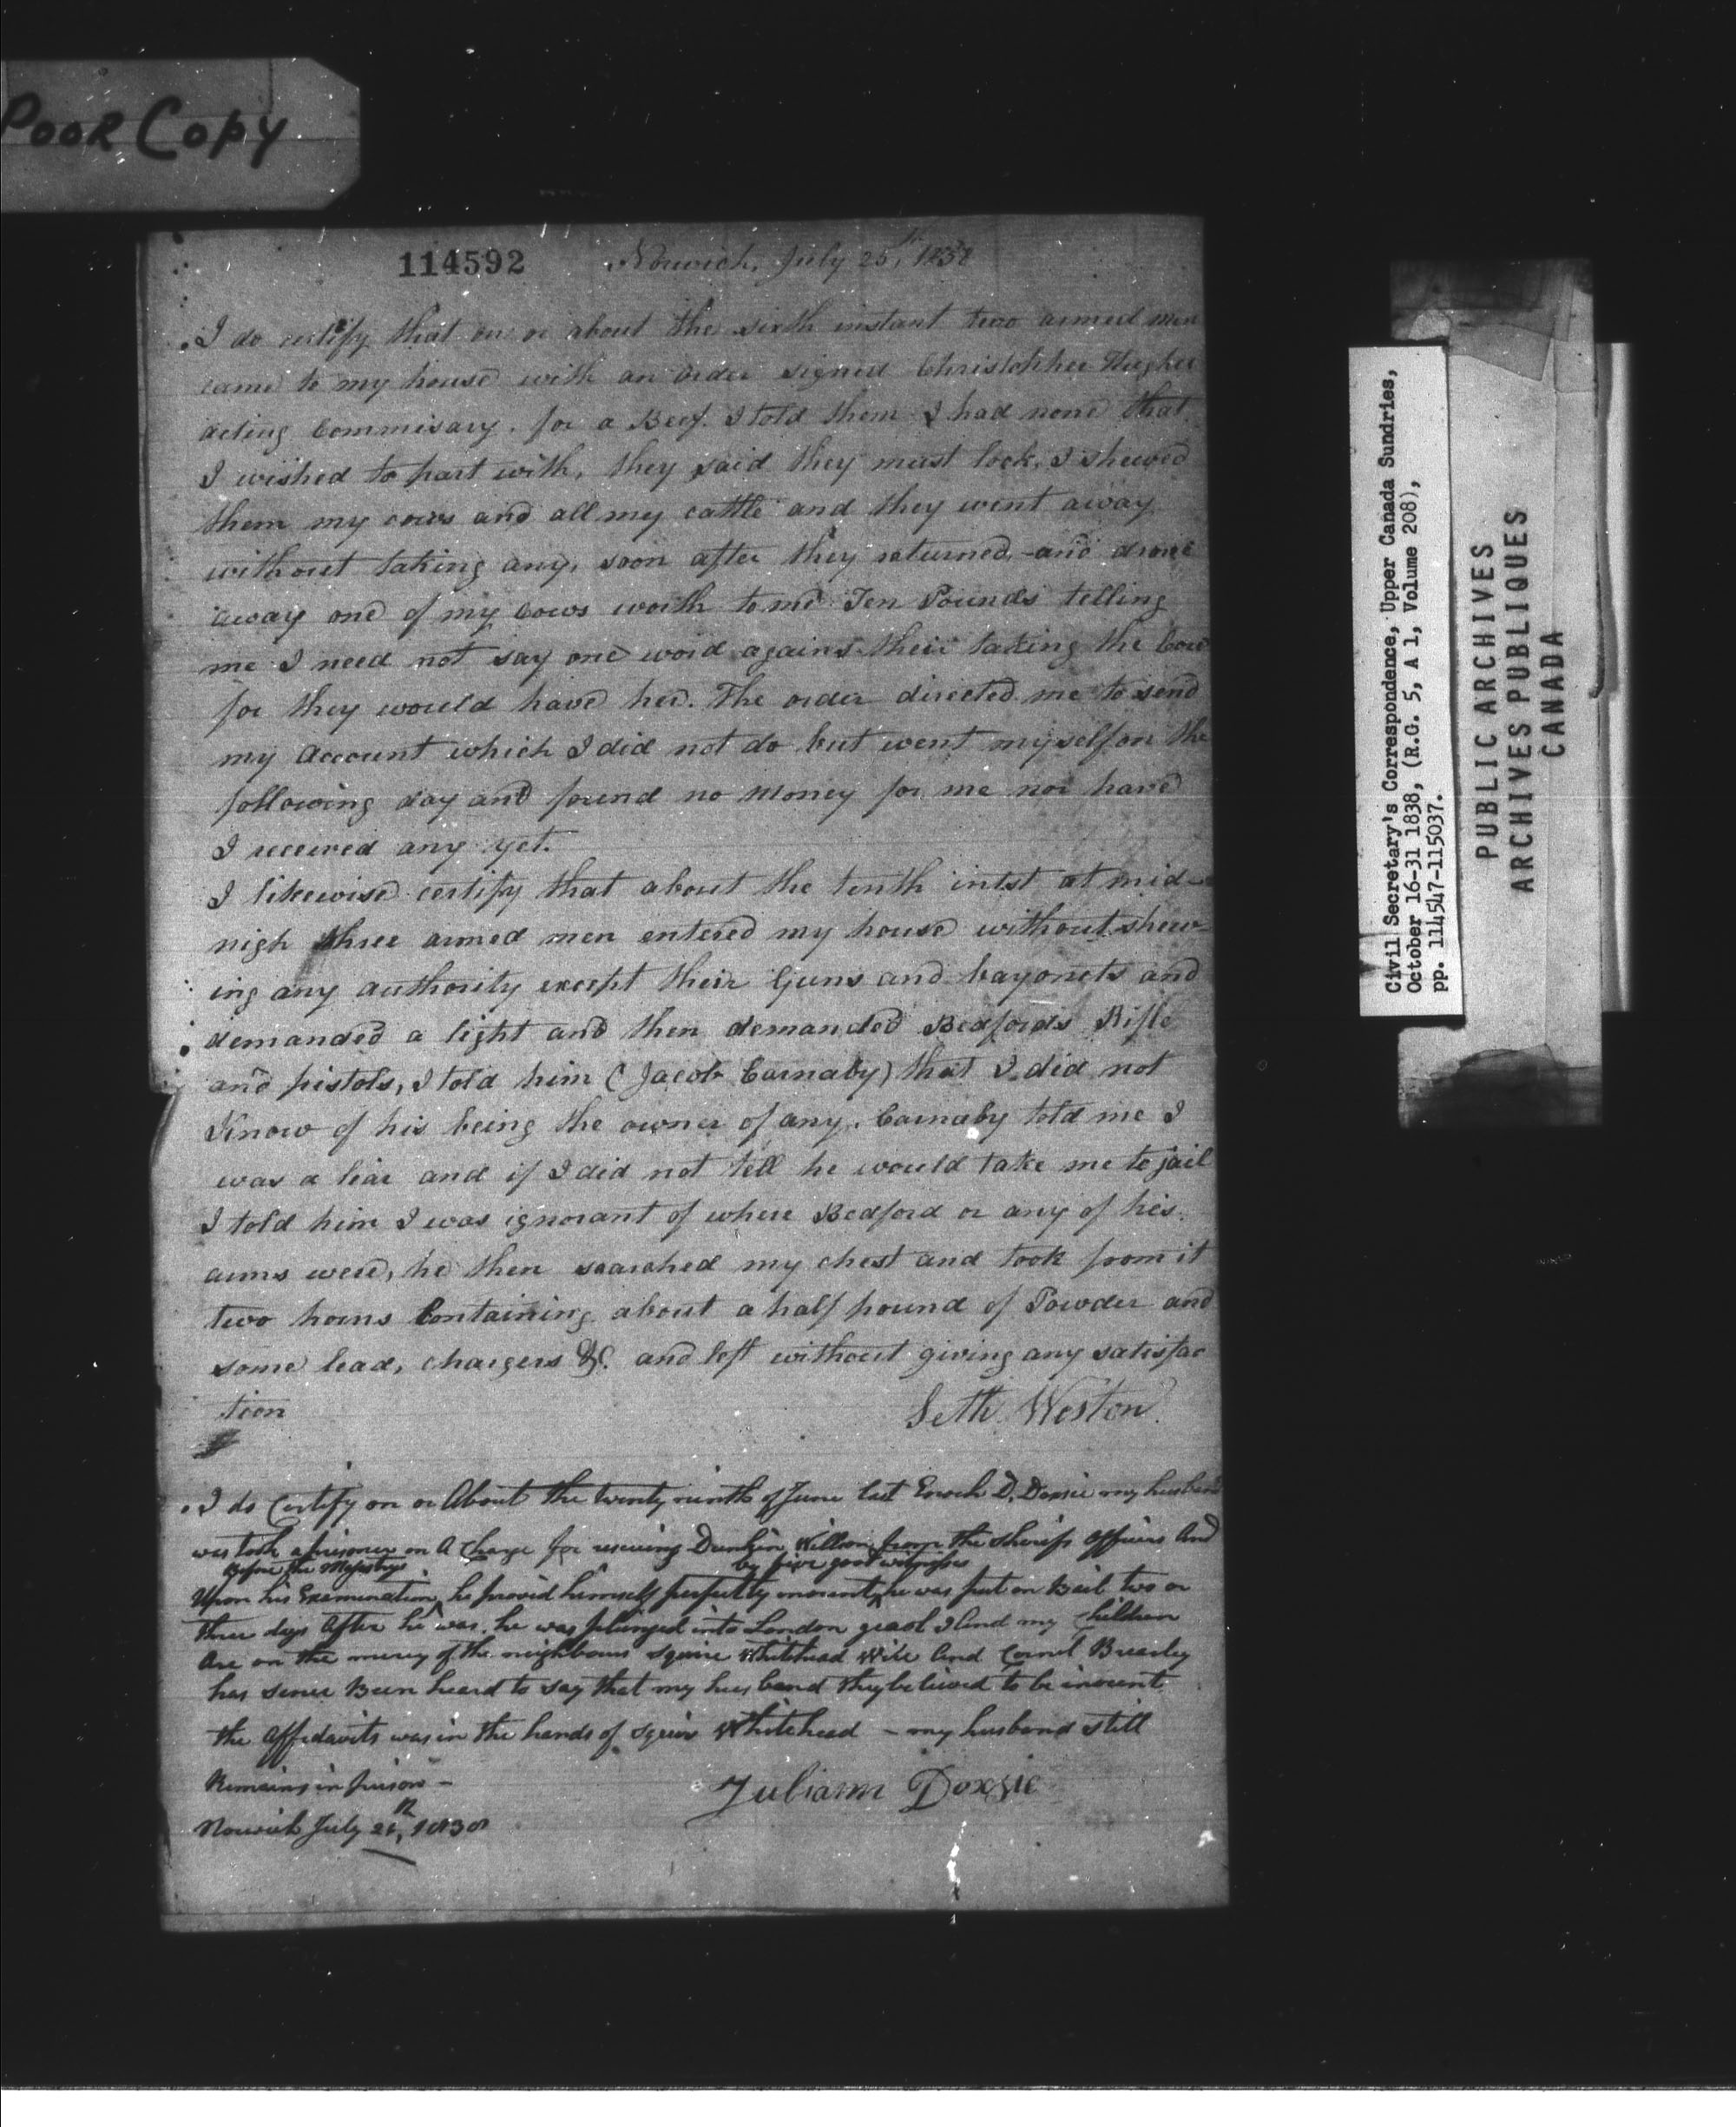 Poor Copy
114592
Norwich, July 25th, 1838
I do certify that on or about the sixth instant two armed men
came to my house with an order signed Christopher Hughes
acting Commisary. for a Beef. I told them I had none that
I wished to part with, they said they must look, I shewed
them my cows and all my cattle and they went away
without taking any, soon after they returned and drove
away one of my Cows worth to me Ten Pounds telling
me I need not say one word against their taking the Cow
for they would have her. The order directed me to send
my account which I did not do but went myself on the
following day and found no money for me nor have
I received any yet.
I likewise certify that about the tenth intst at mid-
nigh three armed men entered my house without shew-
ing any authority except their Guns and bayonets and
demanded a light and then demanded Bedfords Rifle
and pistols, I told him (Jacob Carnaby) that I did not
know of his being the owner of any. Carnaby told me I
was a liar and if I did not tell he would take me to jail
I told him I was ignorant of where Bedford or any of his
arms were, he then searched my chest and took from it
two horns Containing about a half pound of Powder and
some lead, chargers &c. and left without giving any satisfac
tion
Seth Weston
I do Certify on or About the twenty ninth of June last Enoch D. Doxsie my husband
was took a prisoner on A Charge for rescuing Dunkin Willson from the Sherifs officers And
Before the Majestrys by five good witnesses
Upon his Examination he provid himself perfectly inocent he was put on Bail two or
three days After he was. he was plunged into London geaol I And my Children
Are on the mercy of the neighbours Squire Whitehead Wile And Cornel Brearley
has sence Been heard to say that my husband they believed to be inocent
the Affedavits was in the hands of Squire Whitehead - my husband still
Remains in prison -
Juliann Doxsie
Norwich July 1838
Civil Secretary's Correspondence, Upper Canada Sundries,
October 16-31 1838, (R.G. 5, A 1, Volume 208),
pp. 114547-115037.
PUBLIC ARCHIVES
ARCHIVES PUBLIQUES
CANADA